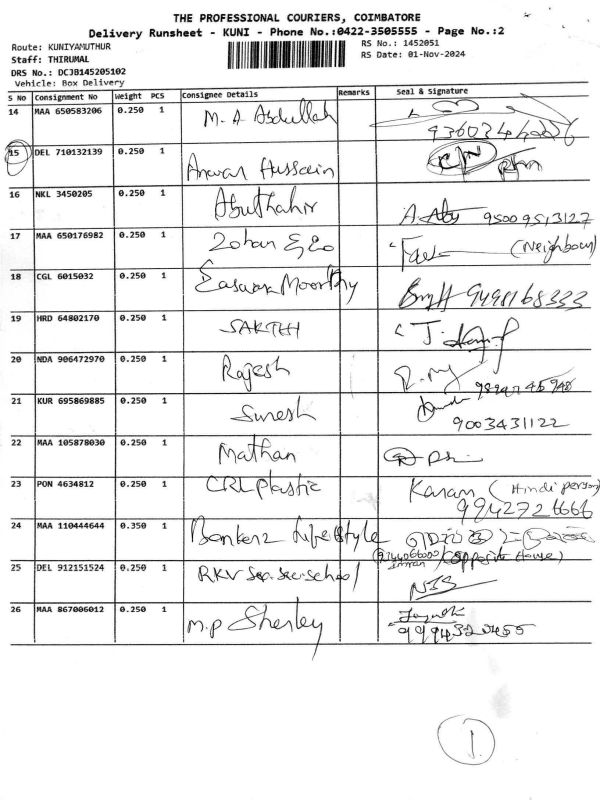 THE PROFESSIONAL COURIERS, COIMBATORE
Delivery Runsheet - KUNI - Phone No.:0422-3505555 - Page No.:2
Route: KUNIYAMUTHUR
RS No.: 1452051
Staff: THIRUMAL
RS Date: 01-Nov-2024
DRS No.: DCJB145205102
Vehicle: Box Delivery
S No Consignment No Weight PCS Consignee Details Remarks Seal & Signature
14 MAA 650583206 0.250 1 M. A Abdullah
15 DEL 710132139 0.250 1 Anwar Hussain
16 NKL 3450205 0.250 1 Abuthahir 95009513127
17 MAA 650176982 0.250 1 Zohan & Co (Neighbour)
18 CGL 6015032 0.250 1 Easwara Moorthy 9498168333
19 HRD 64802170 0.250 1 SAKTHI
20 NDA 906472970 0.250 1 Rajesh
21 KUR 695869885 0.250 1 Suresh 9003431122
22 MAA 105878030 0.250 1 Mathan
23 PON 4634812 0.250 1 CRL Plastic Karan (Hindi person)
9942726666
24 MAA 110444644 0.350 1 Bonkerz Life Style
Imran (Opposite House)
25 DEL 912151524 0.250 1 RKV Sea. Sec. School
26 MAA 867006012 0.250 1 M.P Sherley
9994320455
1